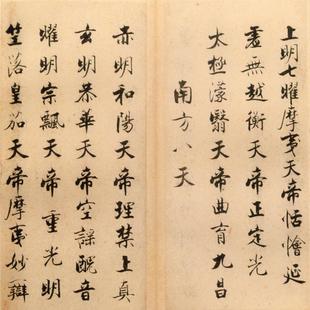 上明七曜摩夷天帝恬憎延
虛無越衡天帝正定光
太極濛翳天帝曲育九昌
南方八天
赤明和陽天帝理禁上真
玄明恭華天帝空謠醜音
耀明宗飄天帝重光明
竺落皇茄天帝摩夷妙辯